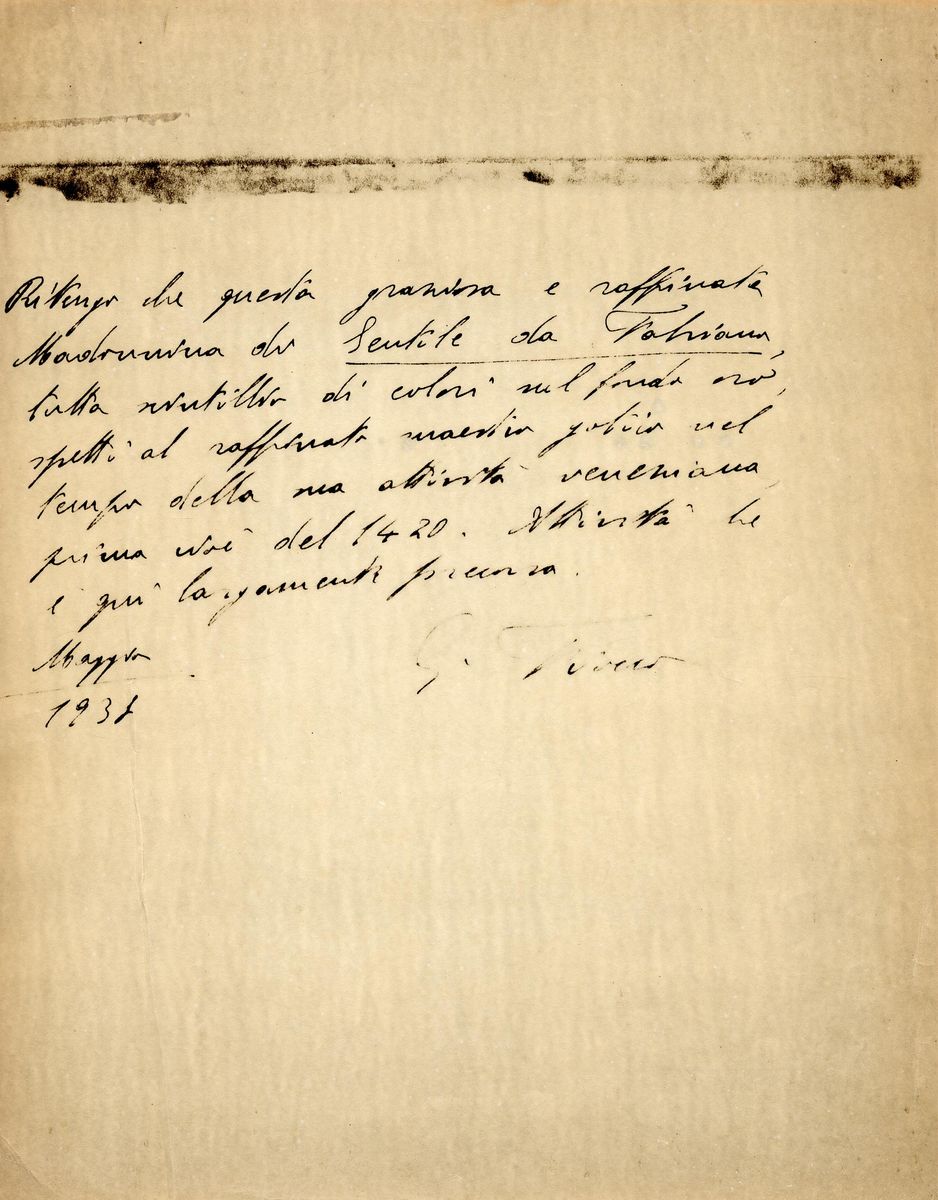 Ritengo che questa graziosa e raffinata
Madonnina di Gentile da Fabiano,
tutta scintillio di colori nel fondo oro,
spetti al raffinato maestro gotico nel
tempo della sua attività veneziana,
prima cioè del 1420. Attività che
è qui largamente precorsa.
Maggio
G. Fiocco
193